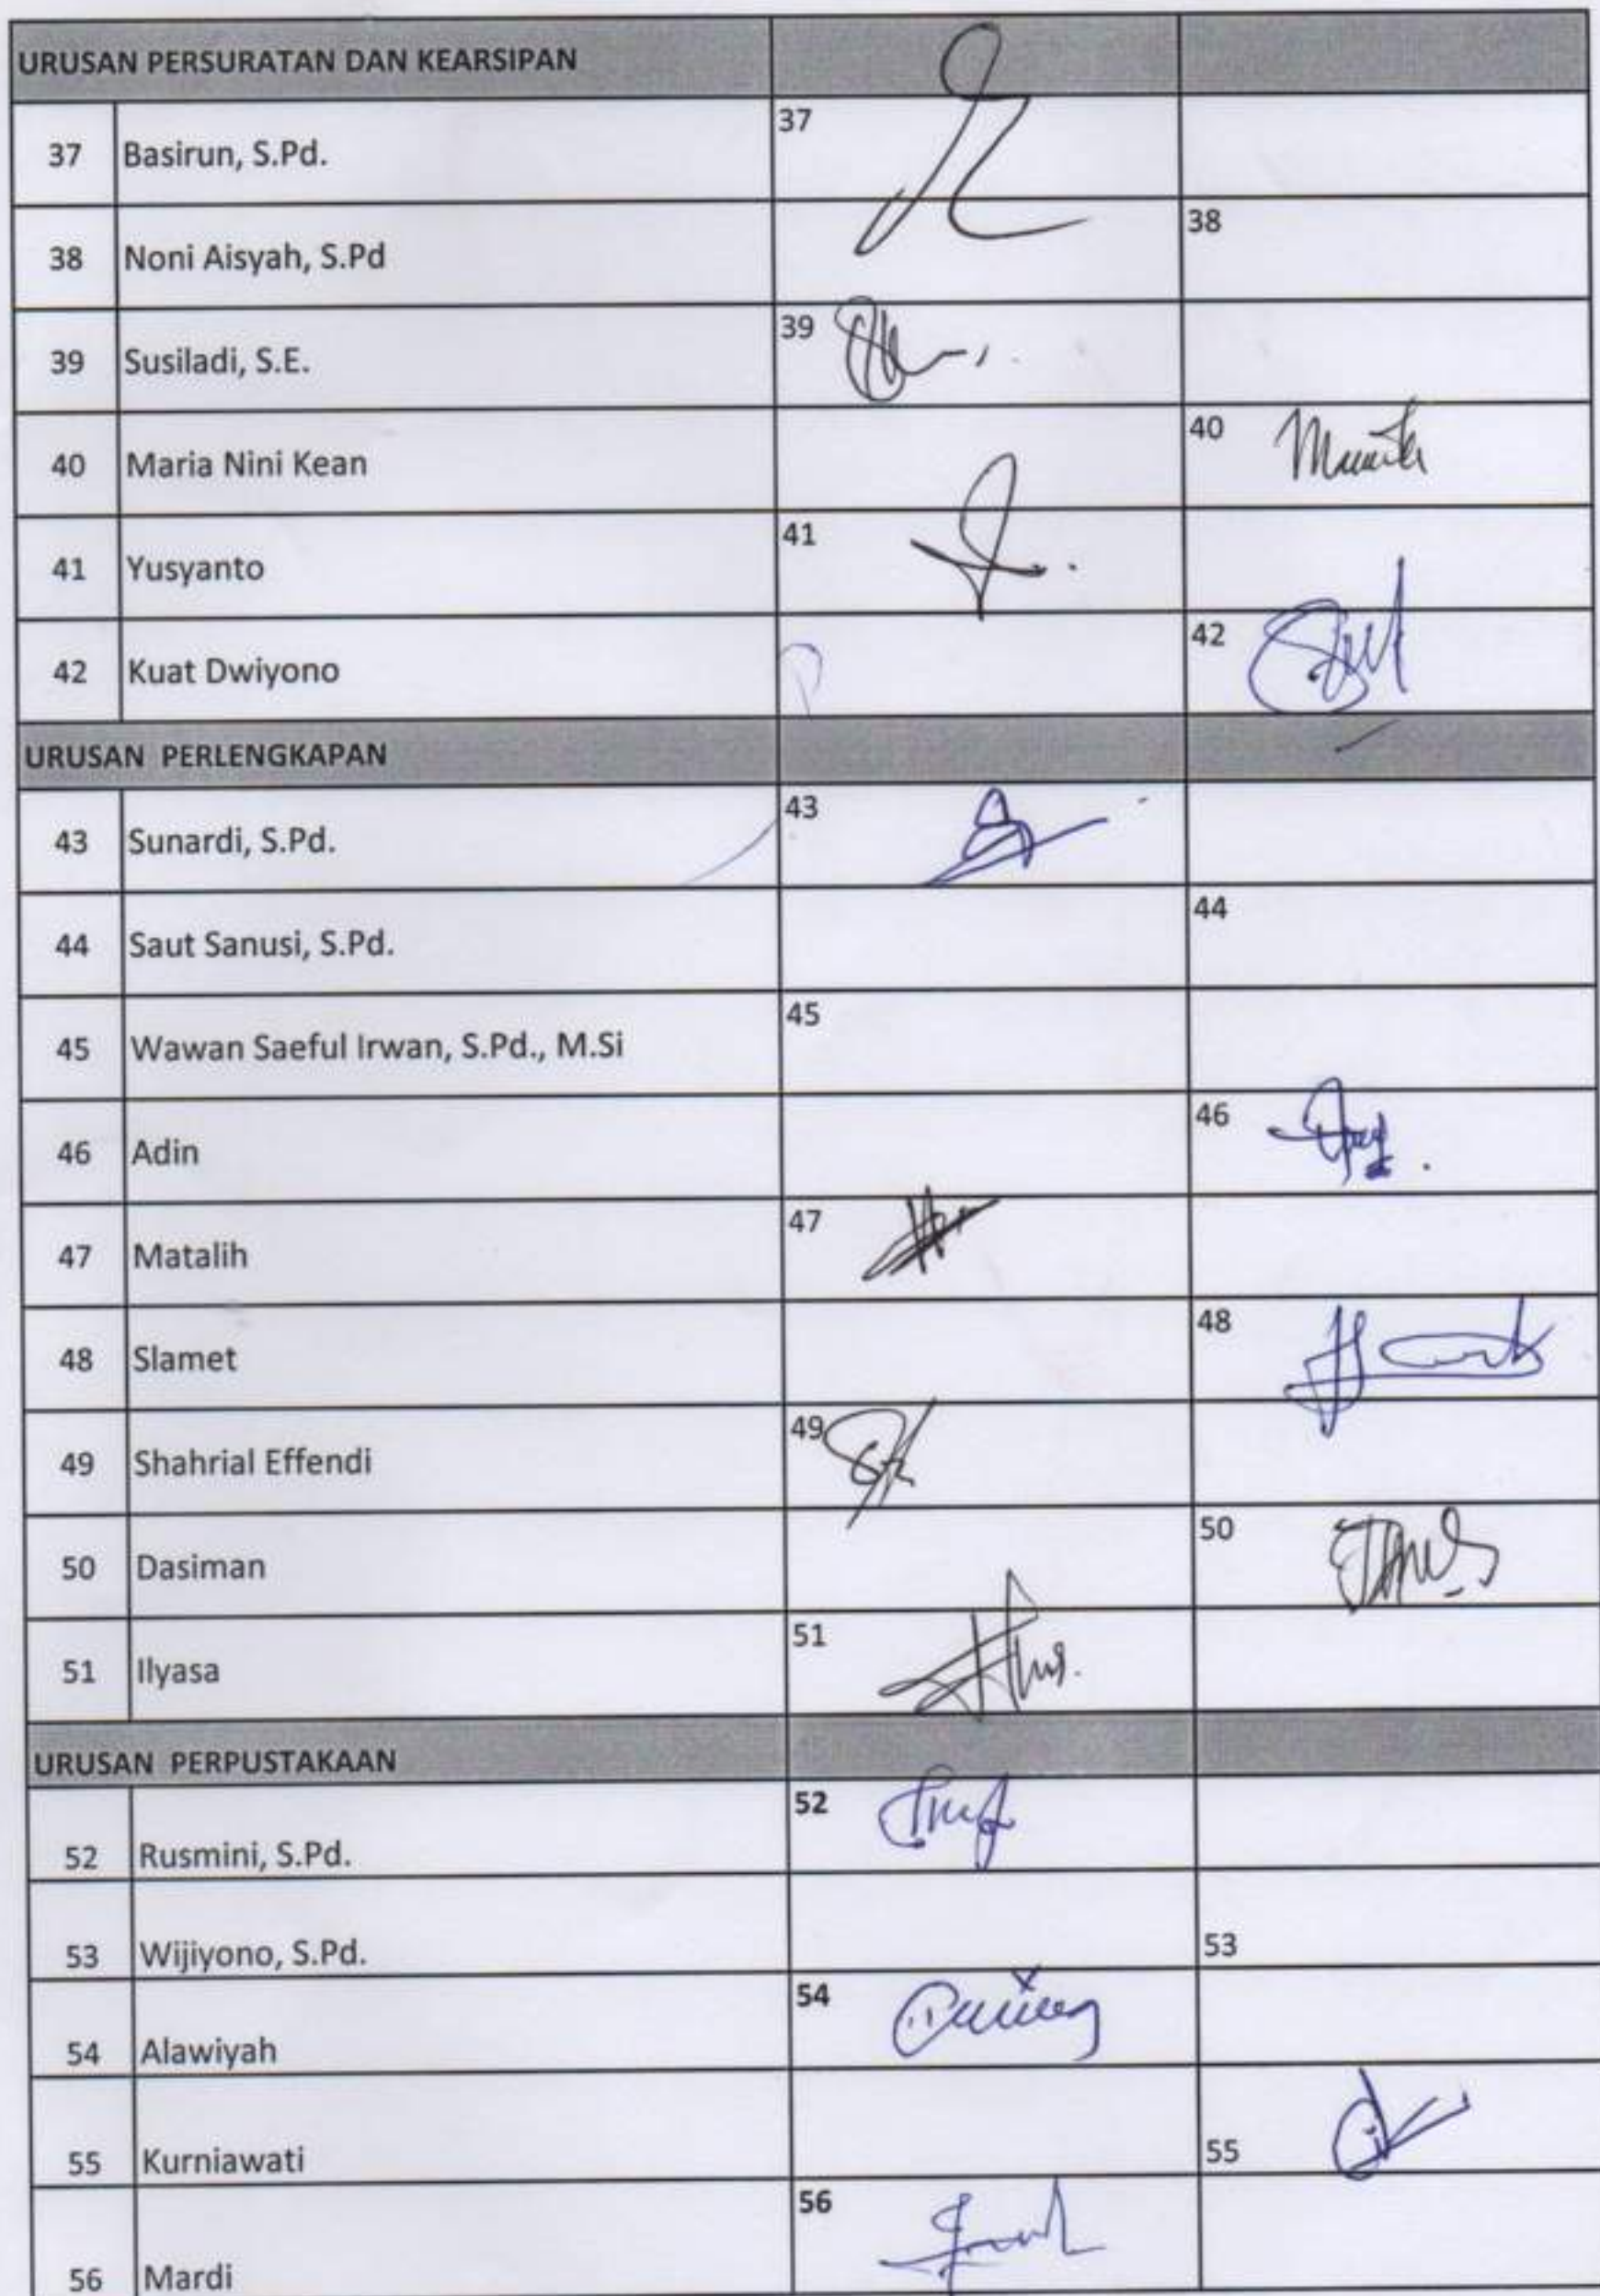 URUSAN PERSURATAN DAN KEARSIPAN
37 Basirun, S.Pd. 37
38 Noni Aisyah, S.Pd 38
39 Susiladi, S.E. 39
40 Maria Nini Kean 40
41 Yusyanto 41
42 Kuat Dwiyono 42
URUSAN PERLENGKAPAN
43 Sunardi, S.Pd. 43
44 Saut Sanusi, S.Pd. 44
45 Wawan Saeful Irwan, S.Pd., M.Si 45
46 Adin 46
47 Matalih 47
48 Slamet 48
49 Shahrial Effendi 49
50 Dasiman 50
51 Ilyasa 51
URUSAN PERPUSTAKAAN
52 Rusmini, S.Pd. 52
53 Wijiyono, S.Pd. 53
54 Alawiyah 54
55 Kurniawati 55
56 Mardi 56